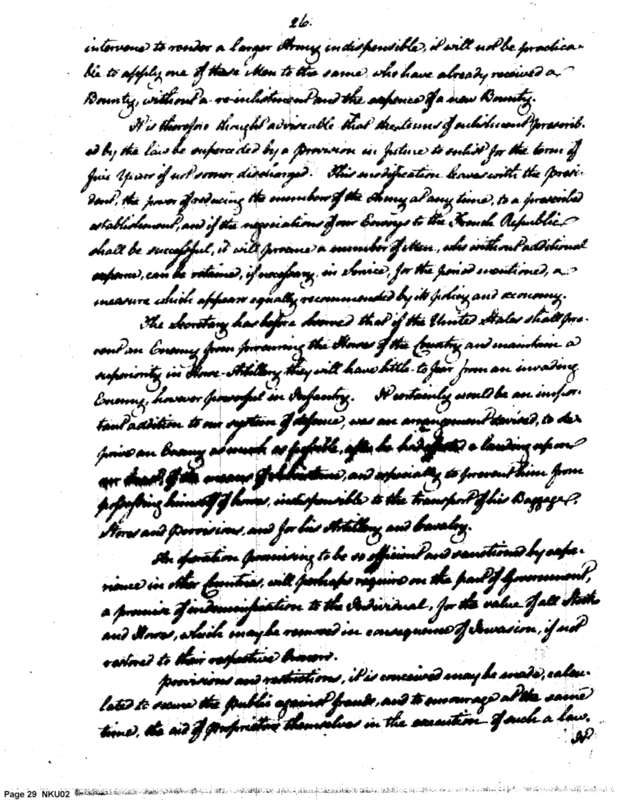 26.
intervene to render a larger Army indispensible, it will not be practica-
ble to apply one of these Men to the same, who have already received a
Bounty, without a reinlistment and the expence of a new Bounty.
It is therefore thought adviseable that the terms of enlistment prescrib-
ed by the law be superceded by a provision in future to enlist for the term of
five Years if not sooner discharged. This modification leaves with the Presi-
dent, the power of reducing the number of the Army at any time, to a prescribed
establishment, and if the negociations of our Envoys to the French Republic
shall be successful, it will procure a number of Men, who without additional
expence, can be retained, if necessary, in Service, for the period mentioned, a
measure which appears equally recommended by its policy and œconomy.
The Secretary has before observed that if the United States shall pre-
vent an Enemy from procuring the Horses of the Country and maintain a
superiority in Horse-Artillery they will have little to fear from an invading
Enemy, however powerful in Infantry. It certainly would be an impor-
tant addition to our system of defence, was an arrangement devised, to de-
prive an Enemy as much as possible, after he had effected a landing upon
our Coast, of the means of subsistence, and especially to prevent him from
possessing himself of horses, indispensible to the transport of his Baggage,
Stores and Provisions, and for his Artillery and Cavalry.
An operation promising to be so efficient and sanctioned by expe-
rience in other Countries, will perhaps require on the part of Government,
a promise of indemnification to the Individual, for the value of all Stock
and Horses, which may be removed in consequence of Invasion, if not
restored to their respective Owners.
Provisions and restrictions, it is conceived may be made, calcu-
lated to secure the Public against frauds, and to encourage at the same
time, the aid of Proprietors themselves in the execution of such a law.
Page 29 NKU02